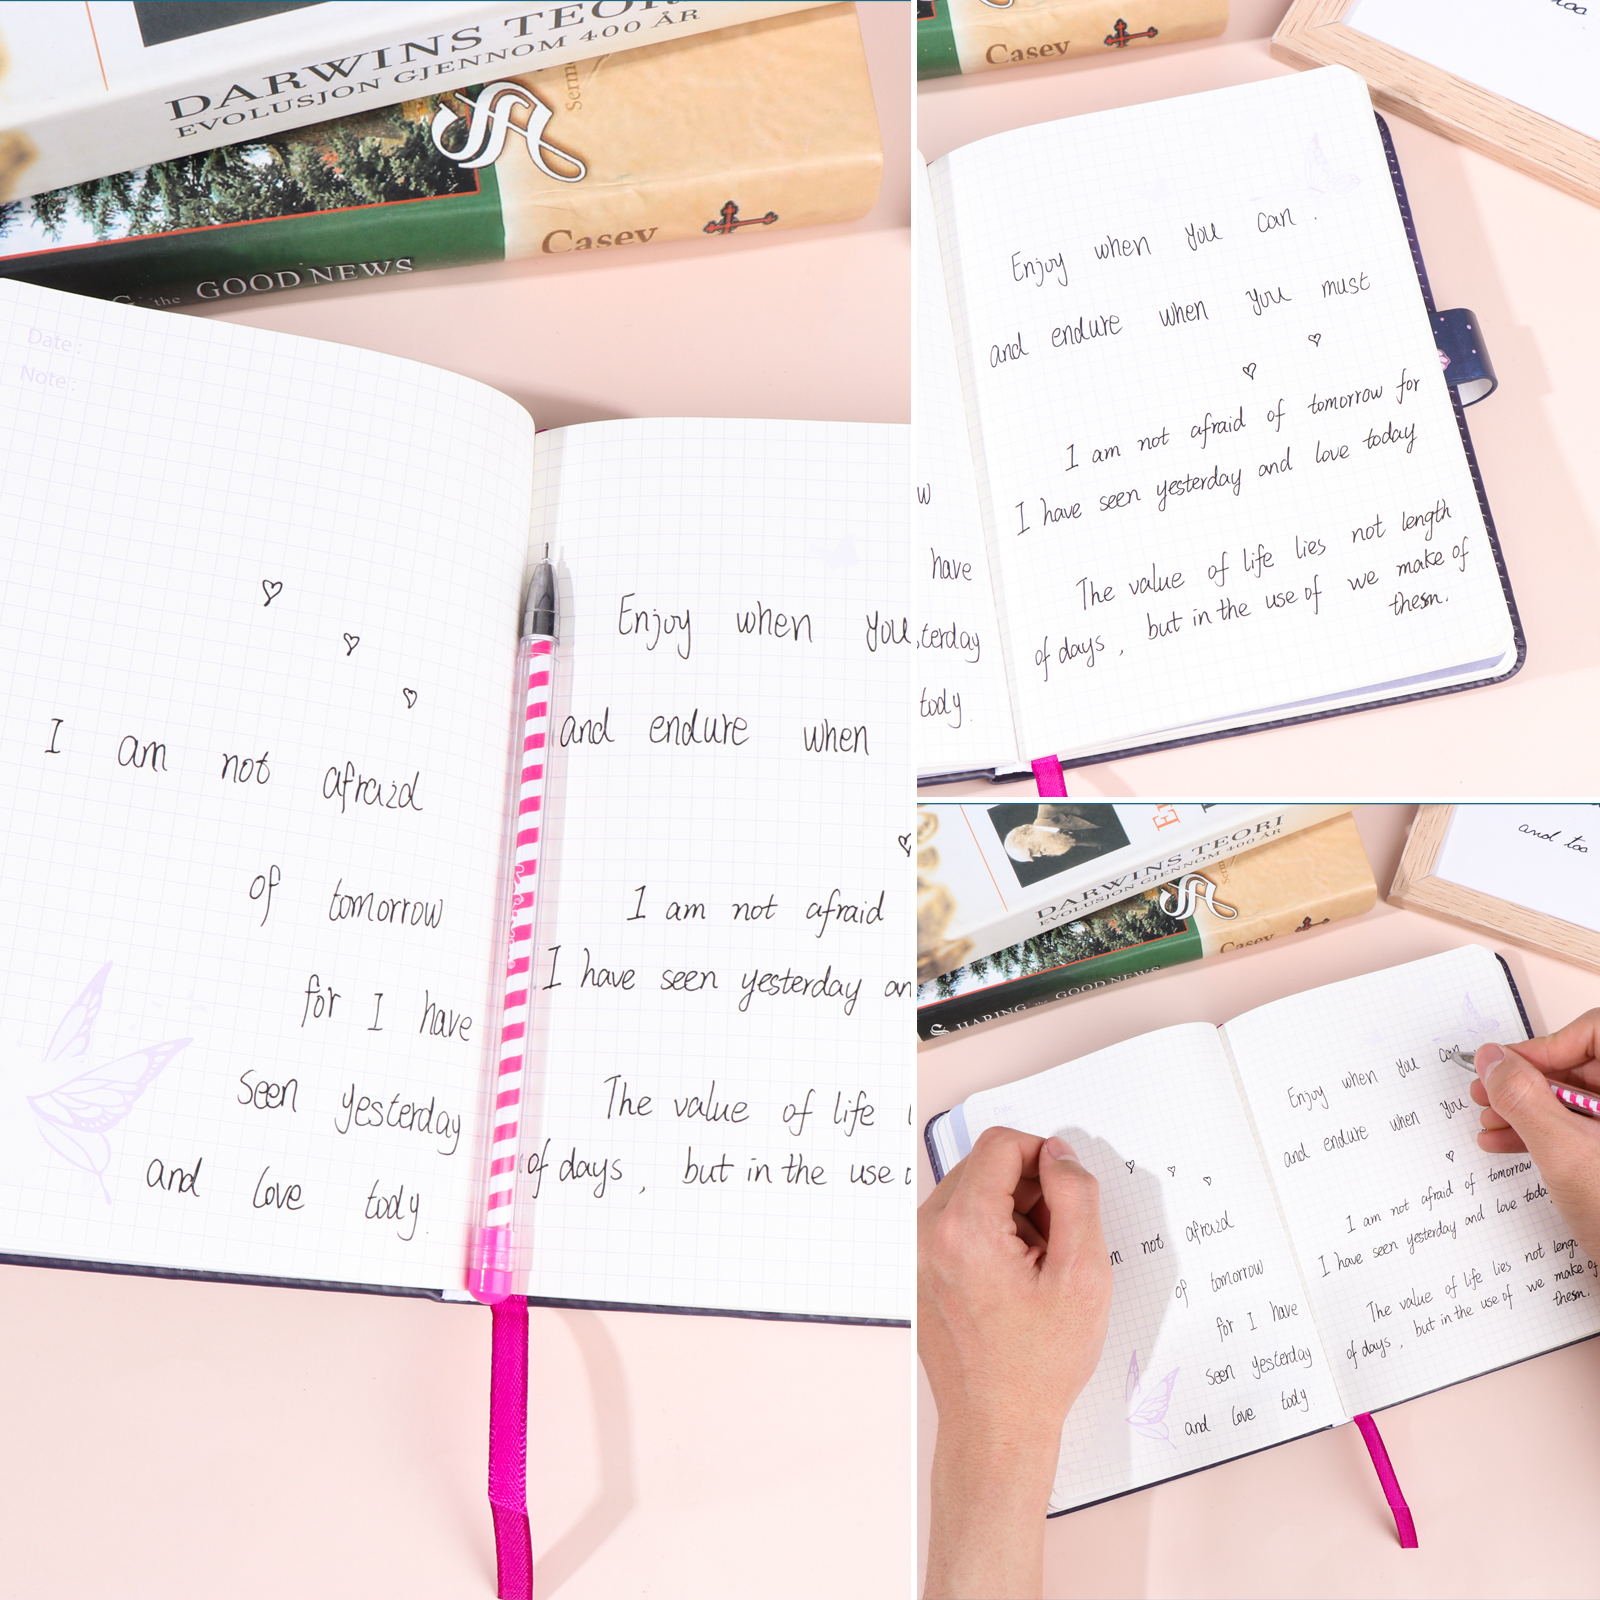 DARWINS TEORI
EVOLUSJON GJENNOM 400 ÅR
Casey
the GOOD NEWS
Date :
Note :
I am not afraid
of tomorrow
for I have
seen yesterday
and love tody.
Enjoy when you
and endure when
I am not afraid
I have seen yesterday an
The value of life
of days , but in the use
Casey
Enjoy when you can .
and endure when you must
I am not afraid of tomorrow for
I have seen yesterday and love today
The value of life lies not length
of days , but in the use of we make of
thesn.
w
have
terday
tody.
DARWINS TEORI
EVOLUSJON GJENNOM 400 ÅR
Casey
SHARING the GOOD NEWS
and too
m not afraid
of tomorrow
for I have
seen yesterday
and love tody
Enjoy when you can
and endure when you
I am not afraid of tomorrow
I have seen yesterday and love toda
The value of life lies not lengt
of days , but in the use of we make of
thesn.